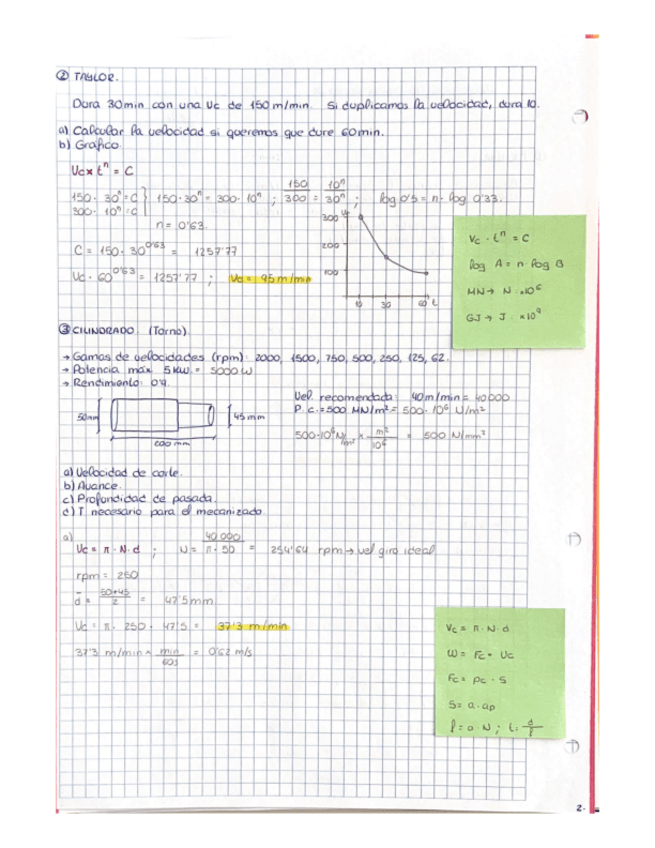 ② TAYLOR.
Dura 30min con una Vc de 150 m/min. Si duplicamos la velocidad, dura 10.
a) Calcular la velocidad si queremos que dure 60min.
b) Gráfico
Vc × tⁿ = C
150 · 30ⁿ = C } 150 · 30ⁿ = 300 · 10ⁿ ; 150/300 = 10ⁿ/30ⁿ ; log 0'5 = n · log 0'33.
300 · 10ⁿ = C
n = 0'63.
C = 150 · 30^0'63 = 1257'77
Vc · 60^0'63 = 1257'77 ; Vc = 95 m/min
300
200
100
10 30 60 t
Vc · tⁿ = C
log A = n · log B
MN → N · ×10⁶
GJ → J · ×10⁹
③ CILINDRADO. (Torno)
→ Gamas de velocidades (rpm): 2000, 1500, 750, 500, 250, 125, 62.
→ Potencia máx 5 kW = 5000 W
→ Rendimiento:
Vel. recomendada: 40 m/min = 40 000
P. c. = 500 MN/m² = 500 · 10⁶ N/m²
50mm
45 mm
600 mm
500·10⁶ N/m² × m²/10⁶ = 500 N/mm²
a) Velocidad de corte.
b) Avance.
c) Profundidad de pasada.
d) T necesario para el mecanizado
a)
Vc = π · N · d ; N = 40 000/π · 50 = 254'64 rpm → vel giro ideal
rpm = 250
d̄ = 50+45/2 = 47'5mm
Vc = π · 250 · 47'5 = 37'3 m/min
37'3 m/min × min/60s = 0'62 m/s
Vc = π · N · d
W = Fc · Vc
Fc = pc · S
S = a · ap
f = a · N ; t = d/f
2.